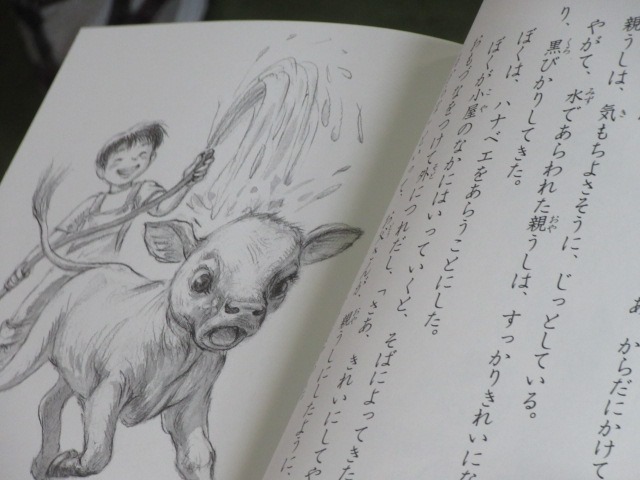 あ、からだにかけて
親うしは、気もちよさそうに、じっとしている。
やがて、水であらわれた親うしは、すっかりきれいにな
り、黒びかりしてきた。
ぼくは、ハナベエをあらうことにした。
ぼくが小屋のなかにはいっていくと、そばによってきた
つなをつけて外につれだし、「さあ、きれいにしてや
親うしにしたように、